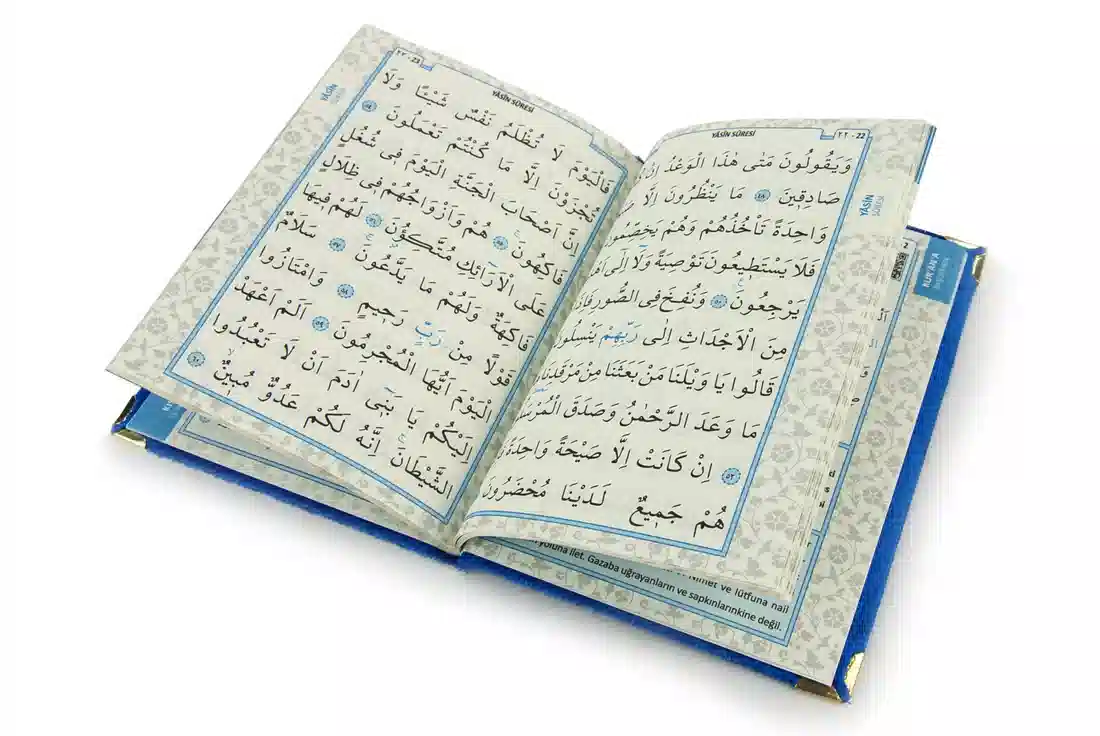 YÂSİN SÛRESİ
٢٢ - 22
وَيَقُولُونَ مَتٰى هٰذَا الْوَعْدُ
صَادِقٖينَ ٤٨ مَا يَنْظُرُونَ اِلَّا
وَاحِدَةً تَأْخُذُهُمْ وَهُمْ يَخِصِّمُونَ
فَلَا يَسْتَطٖيعُونَ تَوْصِيَةً وَلَٓا اِلٰٓى
يَرْجِعُونَ ٥٠ وَنُفِخَ فِى الصُّورِ
مِنَ الْاَجْدَاثِ اِلٰى رَبِّهِمْ يَنْسِلُونَ
قَالُوا يَا وَيْلَنَا مَنْ بَعَثَنَا مِنْ مَرْقَدِنَا
مَا وَعَدَ الرَّحْمٰنُ وَصَدَقَ
اِنْ كَانَتْ اِلَّا صَيْحَةً وَاحِدَةً
٥٣
هُمْ جَمٖيعٌ لَدَيْنَا مُحْضَرُونَ
YÂSİN
SÛRESİ
٢٣ - 23
YÂSİN SÛRESİ
فَالْيَوْمَ لَا تُظْلَمُ نَفْسٌ شَيْئًا وَلَا
تُجْزَوْنَ اِلَّا مَا كُنْتُمْ تَعْمَلُونَ ٥٤
اِنَّ اَصْحَابَ الْجَنَّةِ الْيَوْمَ فٖى شُغُلٍ
فَاكِهُونَ ٥٥ هُمْ وَاَزْوَاجُهُمْ فٖى ظِلَالٍ
عَلَى الْاَرَٓائِكِ مُتَّكِؤُ۫نَ ٥٦ لَهُمْ فٖيهَا
فَاكِهَةٌ وَلَهُمْ مَا يَدَّعُونَ ٥٧ سَلَامٌ
قَوْلًا مِنْ رَبٍّ رَحٖيمٍ ٥٨ وَامْتَازُوا
الْيَوْمَ اَيُّهَا الْمُجْرِمُونَ ٥٩ اَلَمْ اَعْهَدْ
اِلَيْكُمْ يَا بَنٖٓى اٰدَمَ اَنْ لَا تَعْبُدُوا
الشَّيْطَانَ اِنَّهُ لَكُمْ عَدُوٌّ مُبٖينٌ ٦٠
YÂSİN
yoluna ilet. Gazaba uğrayanların ve sapkınlarınkine değil.
Nimet ve lütfuna nail
KUR'AN'A